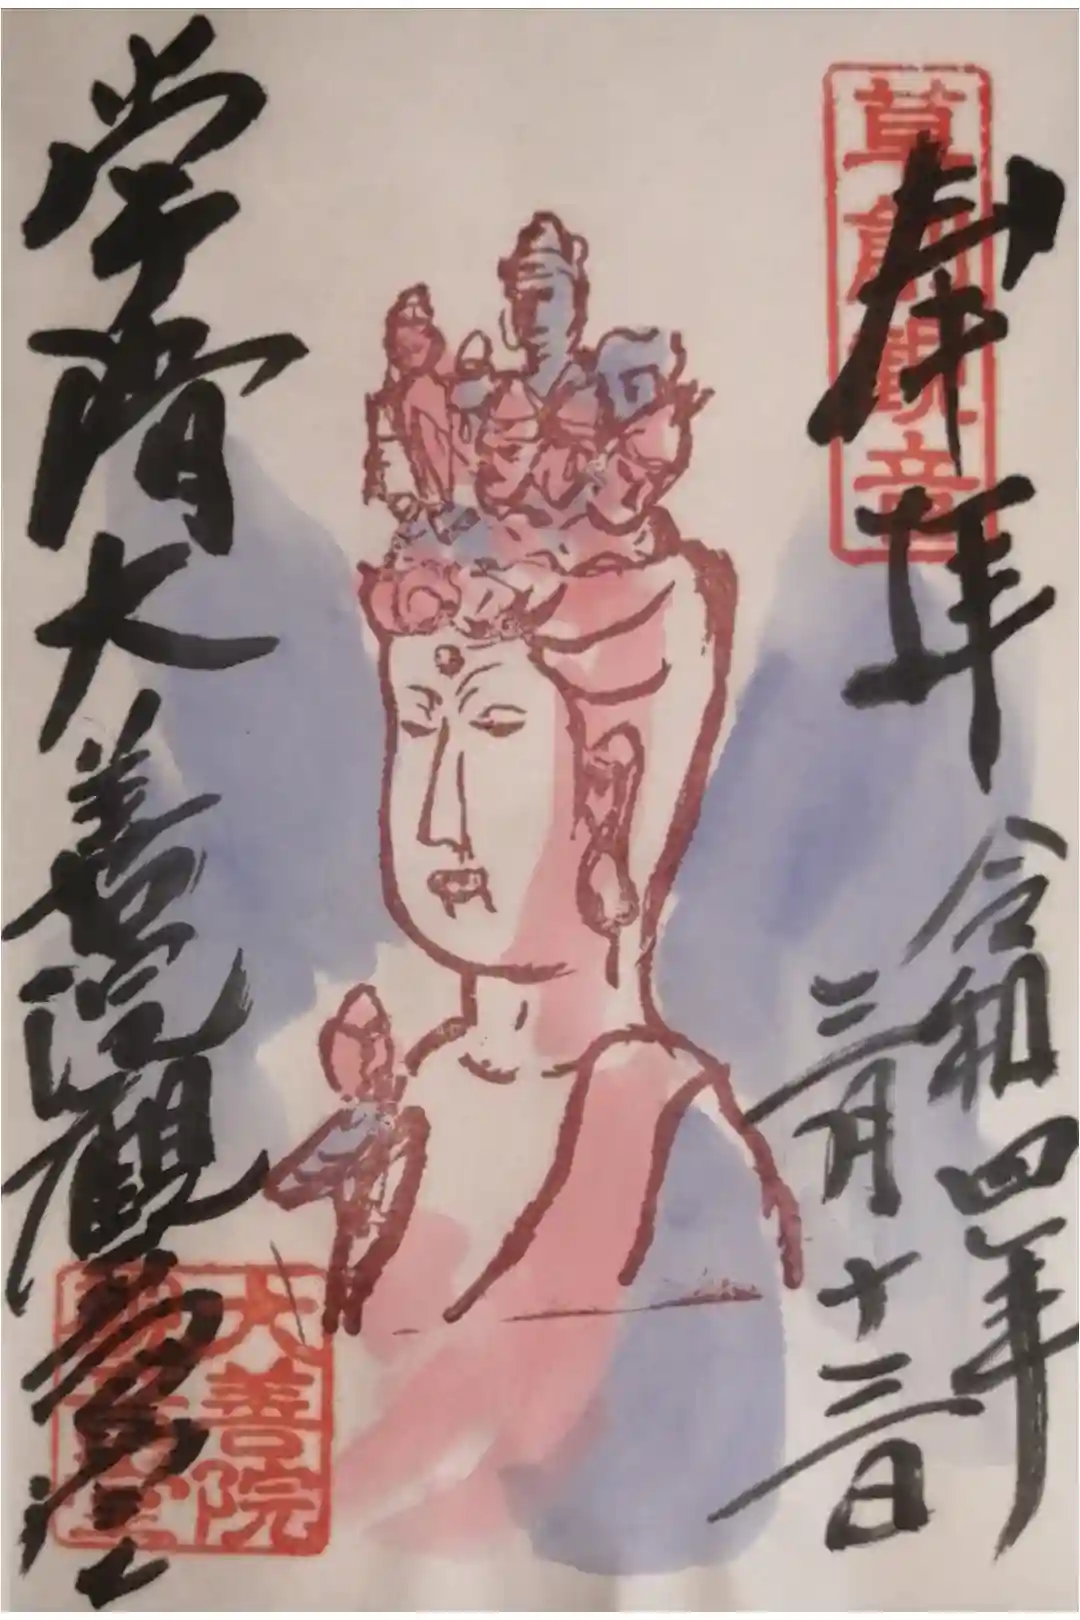 草創観音
奉拝
令和四年
三月十三日
大善院觀音堂
大善院
観音堂